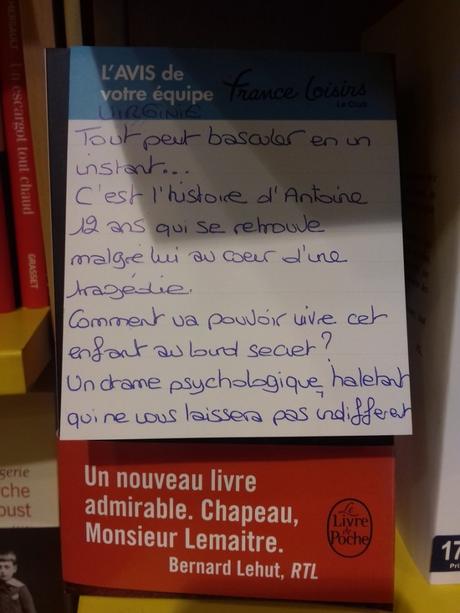 L'AVIS de
votre équipe
France Loisirs
Le Club
VIRGINIE
Tout peut basculer en un
instant...
C'est l'histoire d'Antoine
12 ans qui se retrouve
malgré lui au coeur d'une
tragédie.
Comment va pouvoir vivre cet
enfant au lourd secret?
Un drame psychologique, haletant
qui ne vous laissera pas indifférent
Un nouveau livre
admirable. Chapeau,
Monsieur Lemaitre.
Bernard Lehut, RTL
Le
Livre
de
Poche
escargot tout chaud
GRASSET
17